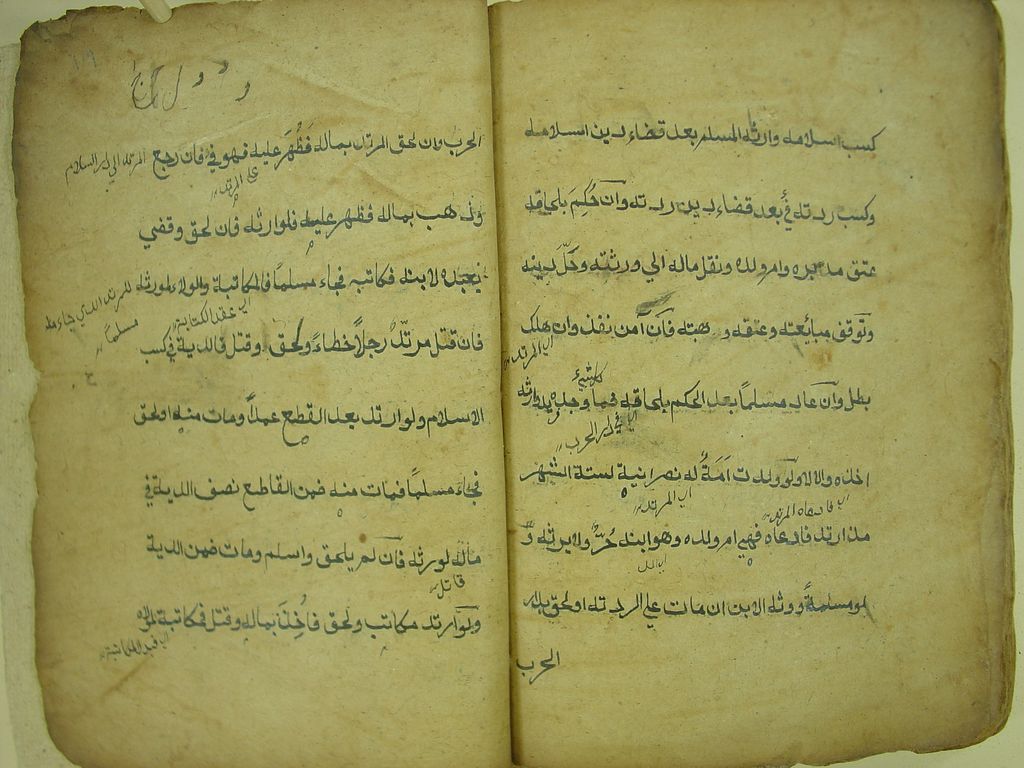 كسب اسلامه وارثه المسلم بعد قضاء دين اسلامه
وكسب ردته فئ بعد قضاء دين ردته وان حُكِمَ بلحاقه
عتق مدبره وام ولده ونقل ماله الي ورثته وحَلَّ دينه
وتوقف مبايعته وعتقه وهبته فان امن نفذ وان هلك
اي المرتد
بطل وان عاد مسلماً بعد الحكم بلحاقه فما وجده وارثه
اي في دار الحرب
اخذه والا لا ولو ولدت اَمَةٌ له نصرانية لستة اشهر
اي المرتد
اي فادعاه المرتد
مذ ارتد فادعاه فهي ام ولده وهو ابنه حُرٌّ ولا يرثه و
لو مسلمةً ورثه الابن ان مات علي الردته او لحق بدار
الحرب
الحرب وان لحق المرتد بماله فَظُهِرَ عليه فهو في فان رجع
المرتد الي دار السلام
علي المرتد
وذهب بماله فظهر عليه فلوارثه فان لحق وقضي
بعبده لابنه فكاتبه فجاء مسلماً فالمكاتبة والولاء لمورثه
للمرتد الذي جاء
مسلماً
اي عقد الكتابة
فان قتل مرتدٌّ رجلاً خطاءً ولحق وقتل فالدية في كسب
الاسلام ولو ارتد بعد القطع عمداً ومات منه او لحق
فجاء مسلماً فمات منه ضمن القاطع نصف الدية في
ماله لورثه فان لم يلحق واسلم ومات ضمن الدية
قاتل
ولو ارتد مكاتب ولحق فاُخِذَ بماله وقتل فمكاتبة لمولاه